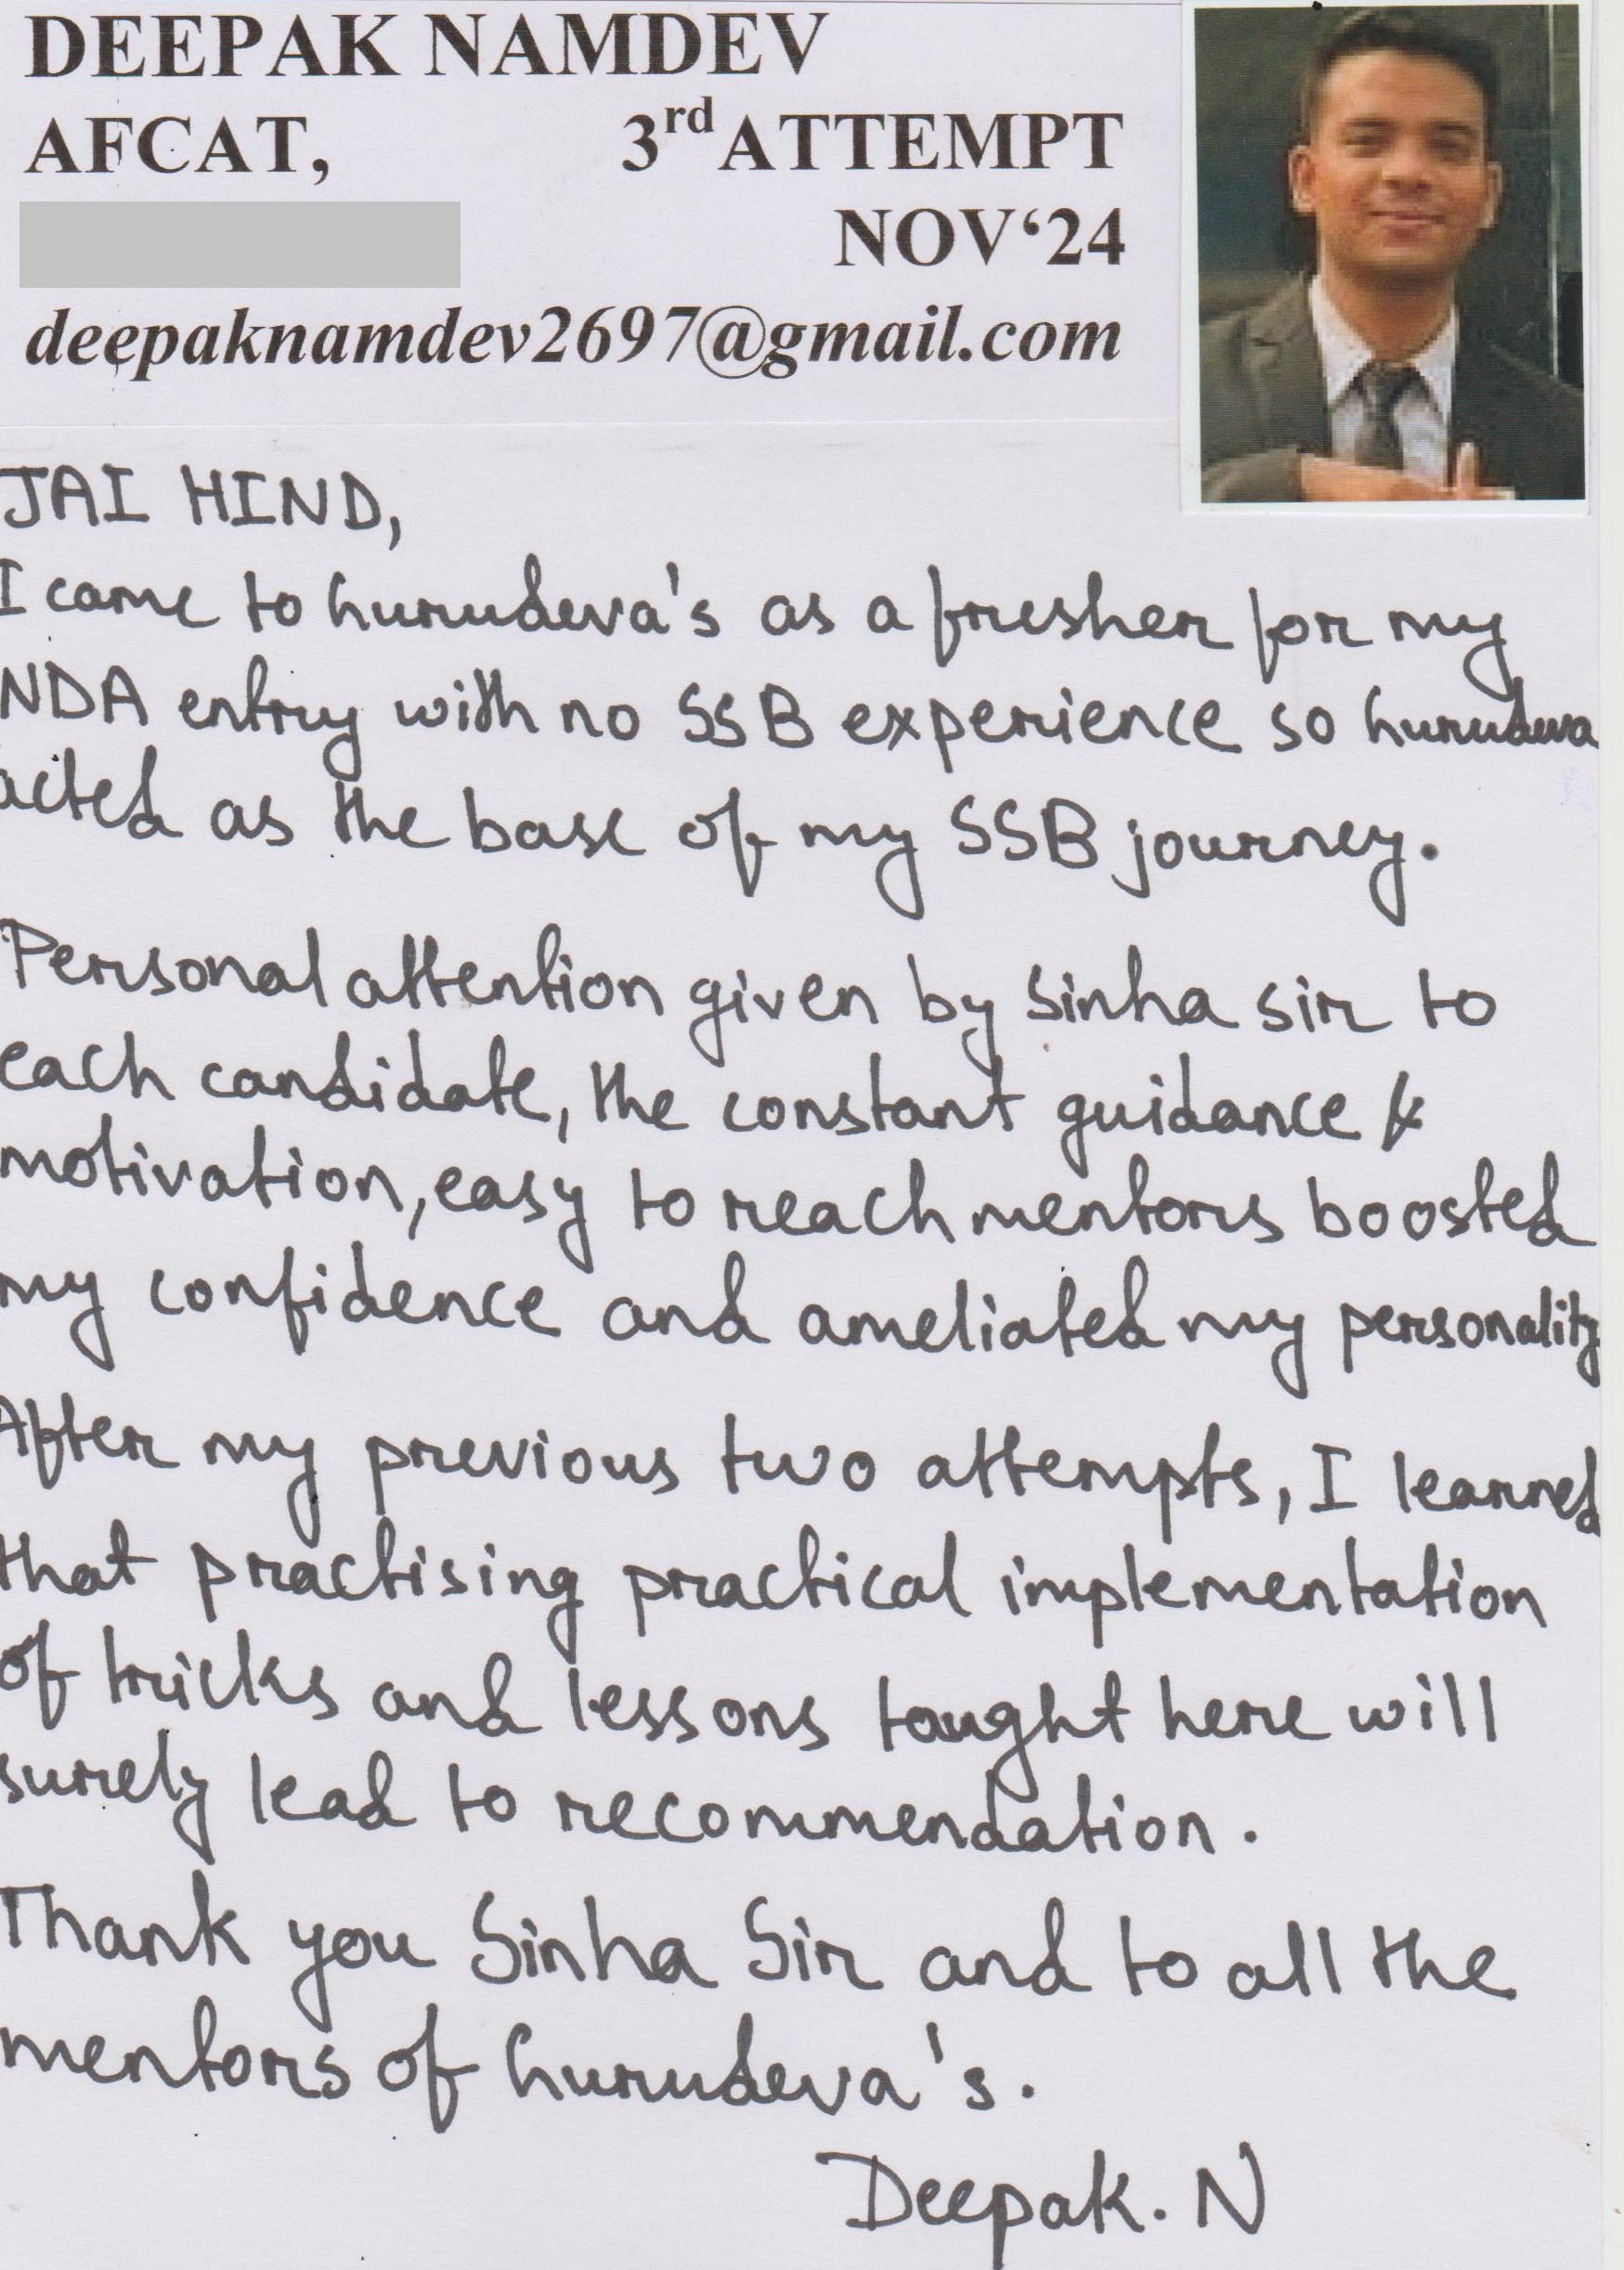 DEEPAK NAMDEV
AFCAT, 3rd ATTEMPT
NOV‘24
deepaknamdev2697@gmail.com
JAI HIND,
I came to Gurudeva's as a fresher for my
NDA entry with no SSB experience so Gurudeva
acted as the base of my SSB journey.
Personal attention given by Sinha sir to
each candidate, the constant guidance &
motivation, easy to reach mentors boosted
my confidence and ameliated my personality
After my previous two attempts, I learned
that practising practical implementation
of tricks and lessons taught here will
surely lead to recommendation.
Thank you Sinha Sir and to all the
mentors of Gurudeva's.
Deepak. N